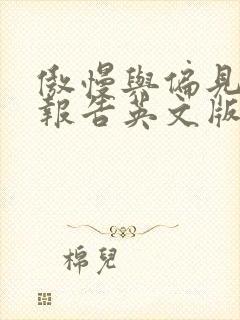 傲慢與偏見
報告英文版
棉兒